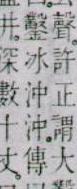 聲許正謂大
鑿冰沖沖。傳
井。深數十丈。